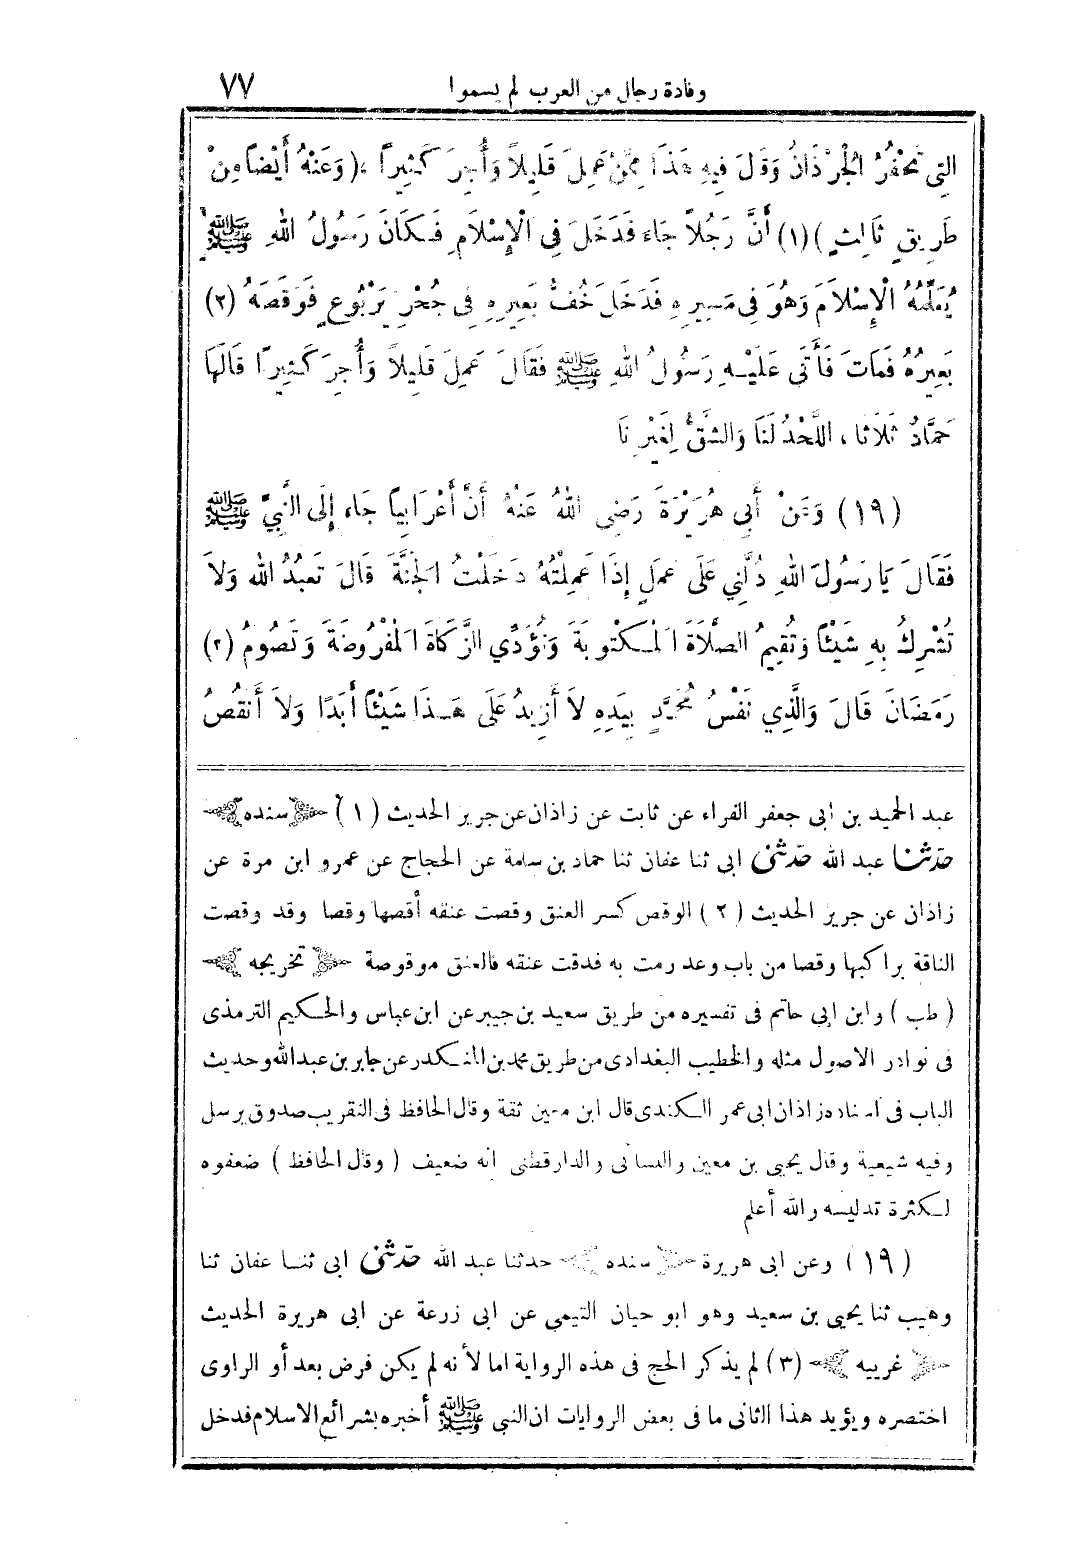 وفادة رجال من العرب لم يسموا ٧٧
التِي تَحْفُرُ الْجُرْذَانُ وَقَالَ فِيهِ هَذَا مِمَّنْ عَمِلَ قَلِيلاً وَأُجِرَ كَثِيرًا ، (وَعَنْهُ أَيْضًا مِنْ
طَرِيقٍ ثَالِثٍ )(١) أَنَّ رَجُلاً جَاءَ فَدَخَلَ فِي الْإِسْلَامِ فَكَانَ رَسُولُ اللهِ ﷺ
يُعَلِّمُهُ الْإِسْلَامَ وَهُوَ فِي مَسِيرِهِ فَدَخَلَ خُفُّ بَعِيرِهِ فِي جُحْرِ يَرْبُوعٍ فَوَقَصَهُ (٢)
بَعِيرُهُ فَمَاتَ فَأَتَى عَلَيْهِ رَسُولُ اللهِ ﷺ فَقَالَ عَمِلَ قَلِيلاً وَأُجِرَ كَثِيرًا قَالَهَا
حَمَّادٌ ثَلَاثًا ، اللَّحْدُ لَنَا وَالشَّقُّ لِغَيْرِنَا
(١٩) وَعَنْ أَبِي هُرَيْرَةَ رَضِيَ اللهُ عَنْهُ أَنَّ أَعْرَابِياً جَاءَ إِلَى النَّبِيِّ ﷺ
فَقَالَ يَا رَسُولَ اللهِ دُلَّنِي عَلَى عَمَلٍ إِذَا عَمِلْتُهُ دَخَلْتُ الْجَنَّةَ قَالَ تَعبُدُ الله وَلَا
تُشْرِكُ بِهِ شَيْئًا وَتُقِيمُ الصَّلَاةَ الْمَكْتُوبَةَ وَتُؤَدِّي الزَّكَاةَ الْمَفْرُوضَةَ وَتَصُومُ (٣)
رَمَضَانَ قَالَ وَالَّذِي نَفْسُ مُحَمَّدٍ بِيَدِهِ لَا أَزِيدُ عَلَى هَذَا شَيْئًا أَبَدًا وَلَا أَنقُصُ
عبد الحميد بن ابى جعفر الفراء عن ثابت عن زاذان عن جرير الحديث (١) سنده
حدّثنا عبد الله حدّثنى ابى ثنا عفان ثنا حماد بن سلمة عن الحجاج عن عمرو ابن مرة عن
زاذان عن جرير الحديث (٢) الوقص كسر العنق وقصت عنقه أقصها وقصا وقد وقصت
الناقة براكبها وقصا من باب وعد رمت به فدقت عنقه فالعنق موقوصة تخريجه
( طب ) وابن ابى حاتم فى تفسيره من طريق سعيد بن جبير عن ابن عباس والحكيم الترمذى
فى نوادر الاصول مثله والخطيب البغدادى من طريق محمد بن المنكدر عن جابر بن عبد الله وحديث
الباب فى اسناده زاذان ابى عمر الكندى قال ابن معين ثقة وقال الحافظ فى التقريب صدوق يرسل
وفيه شيعية وقال يحيى بن معين والنسائى والدارقطنى انه ضعيف ( وقال الحافظ ) ضعفوه
لكثرة تدليسه والله أعلم
(١٩) وعن ابى هريرة سنده حدثنا عبد الله حدّثنى ابى ثنا عفان ثنا
وهيب ثنا يحيى بن سعيد وهو ابو حيان التيمى عن ابى زرعة عن ابى هريرة الحديث
غريبه (٣) لم يذكر الحج فى هذه الرواية اما لأنه لم يكن فرض بعد أو الراوى
اختصره ويؤيد هذا الثانى ما فى بعض الروايات ان النبى ﷺ أخبره بشرائع الاسلام فدخل